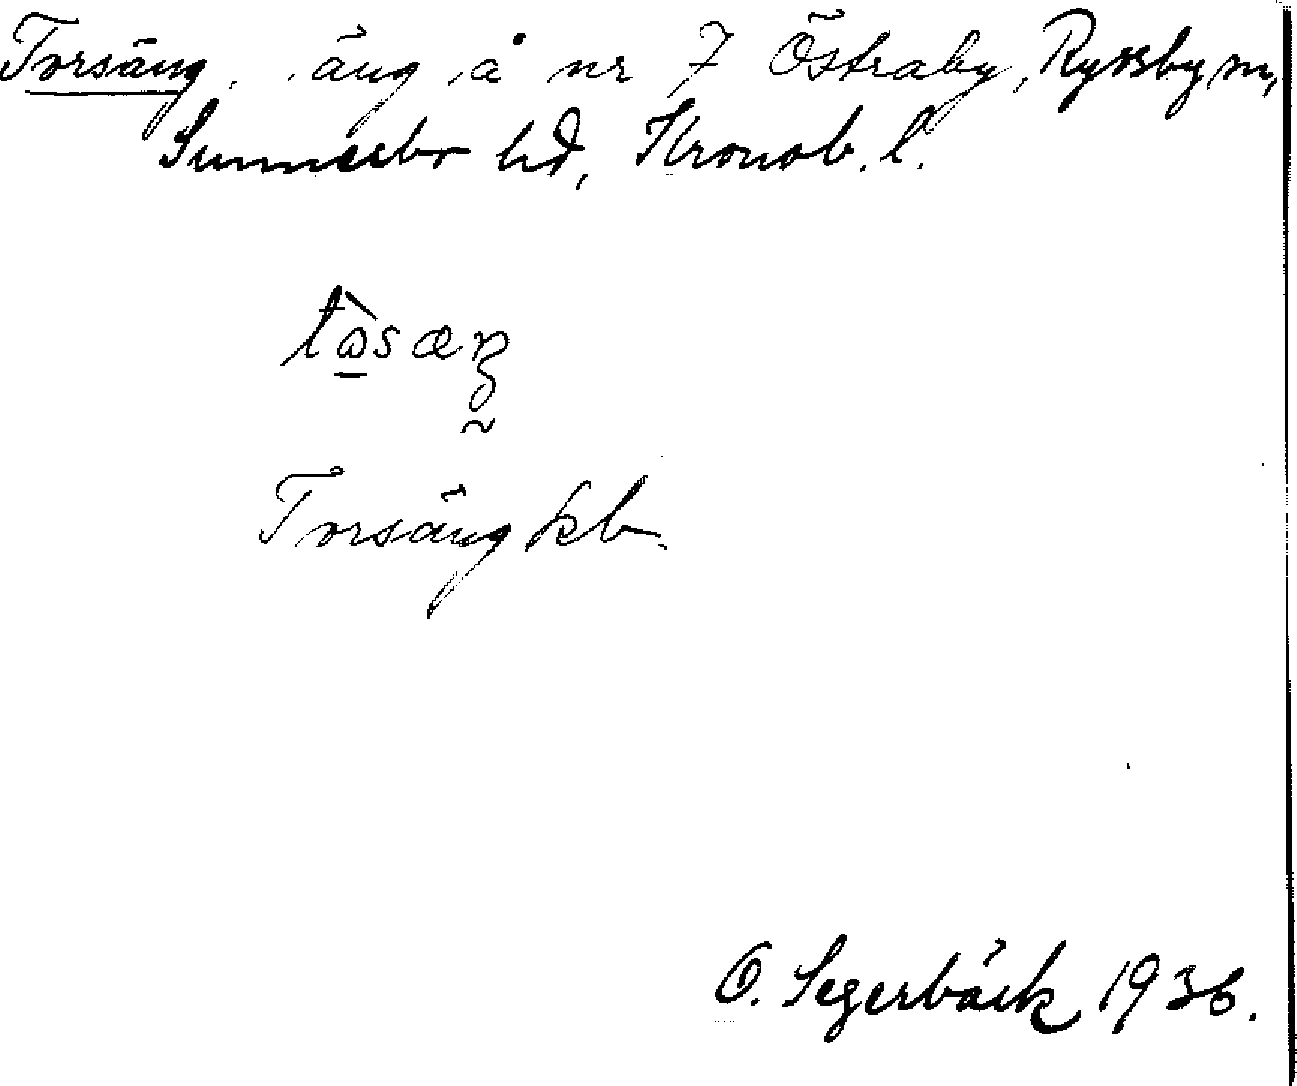 Torsäng, äng å nr 7 Östraby, Ryssby sn,
Sunnerbo hd, Kronob. l.
Torsäng kb
O. Segerbäck 1936.